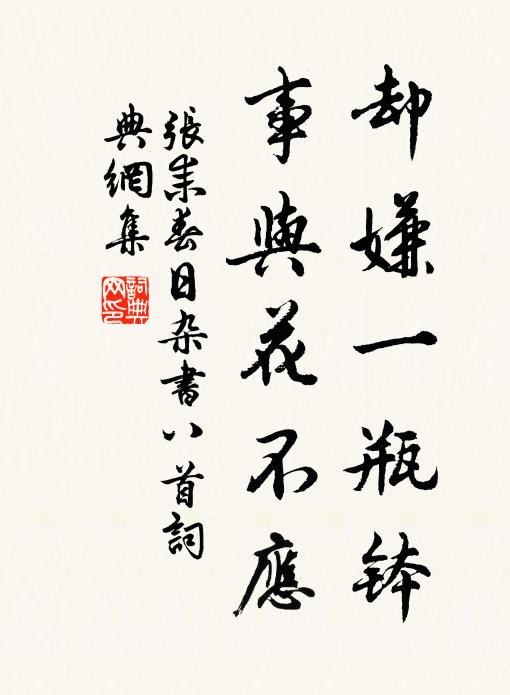 却嫌一瓶缽
事與花不應
張耒春日杂書八首詞
典網集
詞典
网印